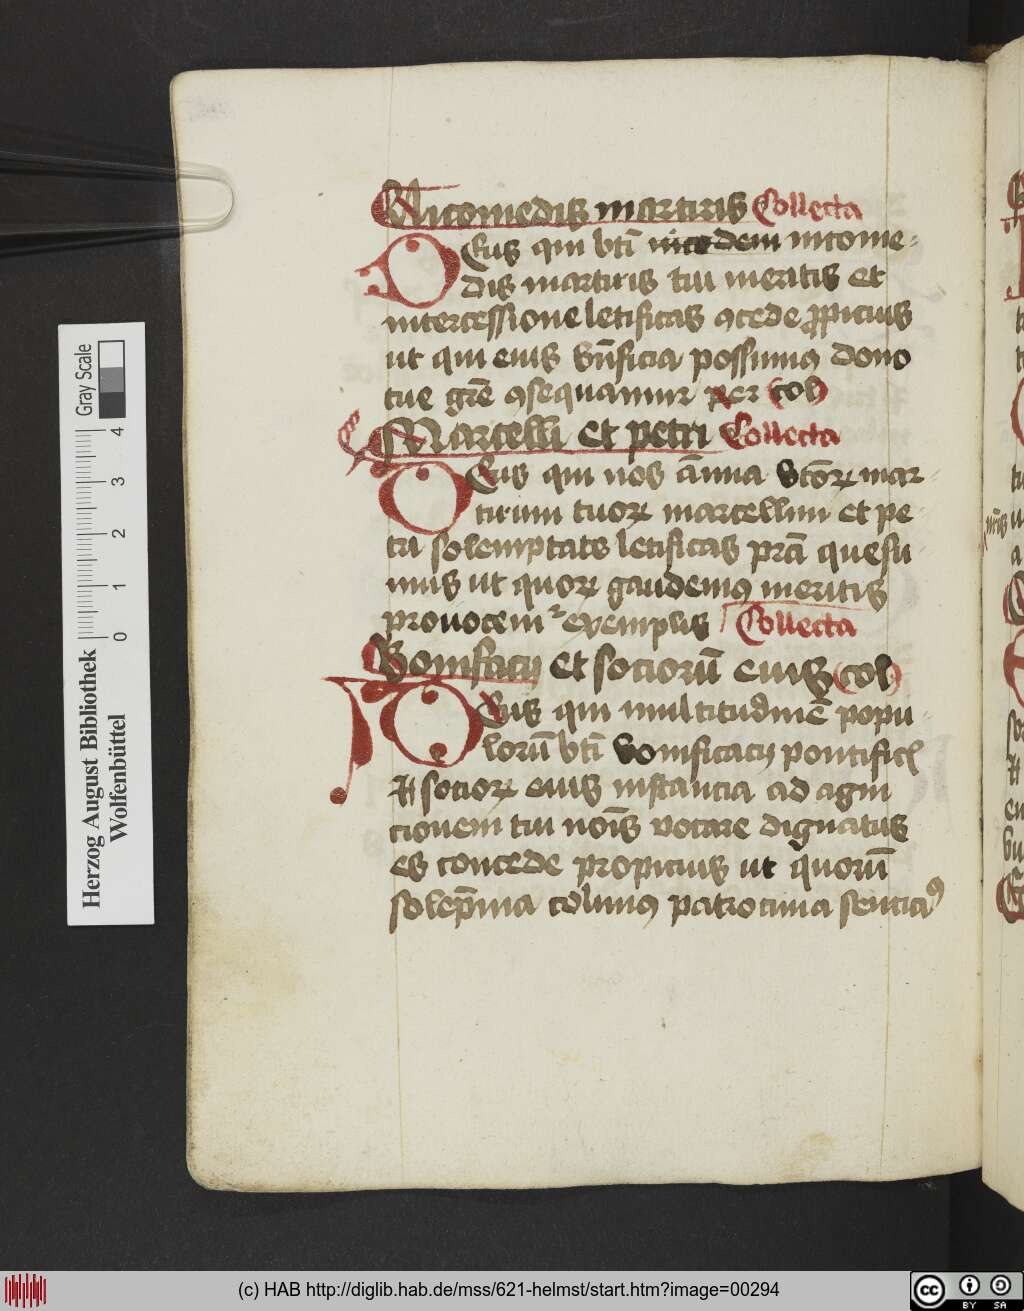 Nicomedis martiris Collecta
Deus qui bti̅ nicodem nicome-
dis martiris tui meritis et
intercessione letificas ꝯcede ꝓpicius
ut qui eius bn̅ficia possimus dono
tue gr̅e ꝯsequamur per Col
Marcelli et petri Collecta
Deus qui nos a̅nua bto̅ꝝ mar-
tirum tuoꝝ marcellini et pe-
tri solemptate letificas pr̅a quesu-
mus ut quoꝝ gaudemꝯ meritis
prouocem exemplis Collecta
Bonifacij et sociorū eius Col
Deus qui multitudinē popu
lorū bti̅ bonificacij pontificis
⁊ socioꝝ eius instancia ad agni
cionem tui noi̅s vocare dignatus
es concede propicius ut quorū
solep̅nia colimꝯ patrocinia senciaꝯ
Herzog August Bibliothek
Wolfenbüttel
0 1 2 3 4
Gray Scale
(c) HAB http://diglib.hab.de/mss/621-helmst/start.htm?image=00294
cc BY SA